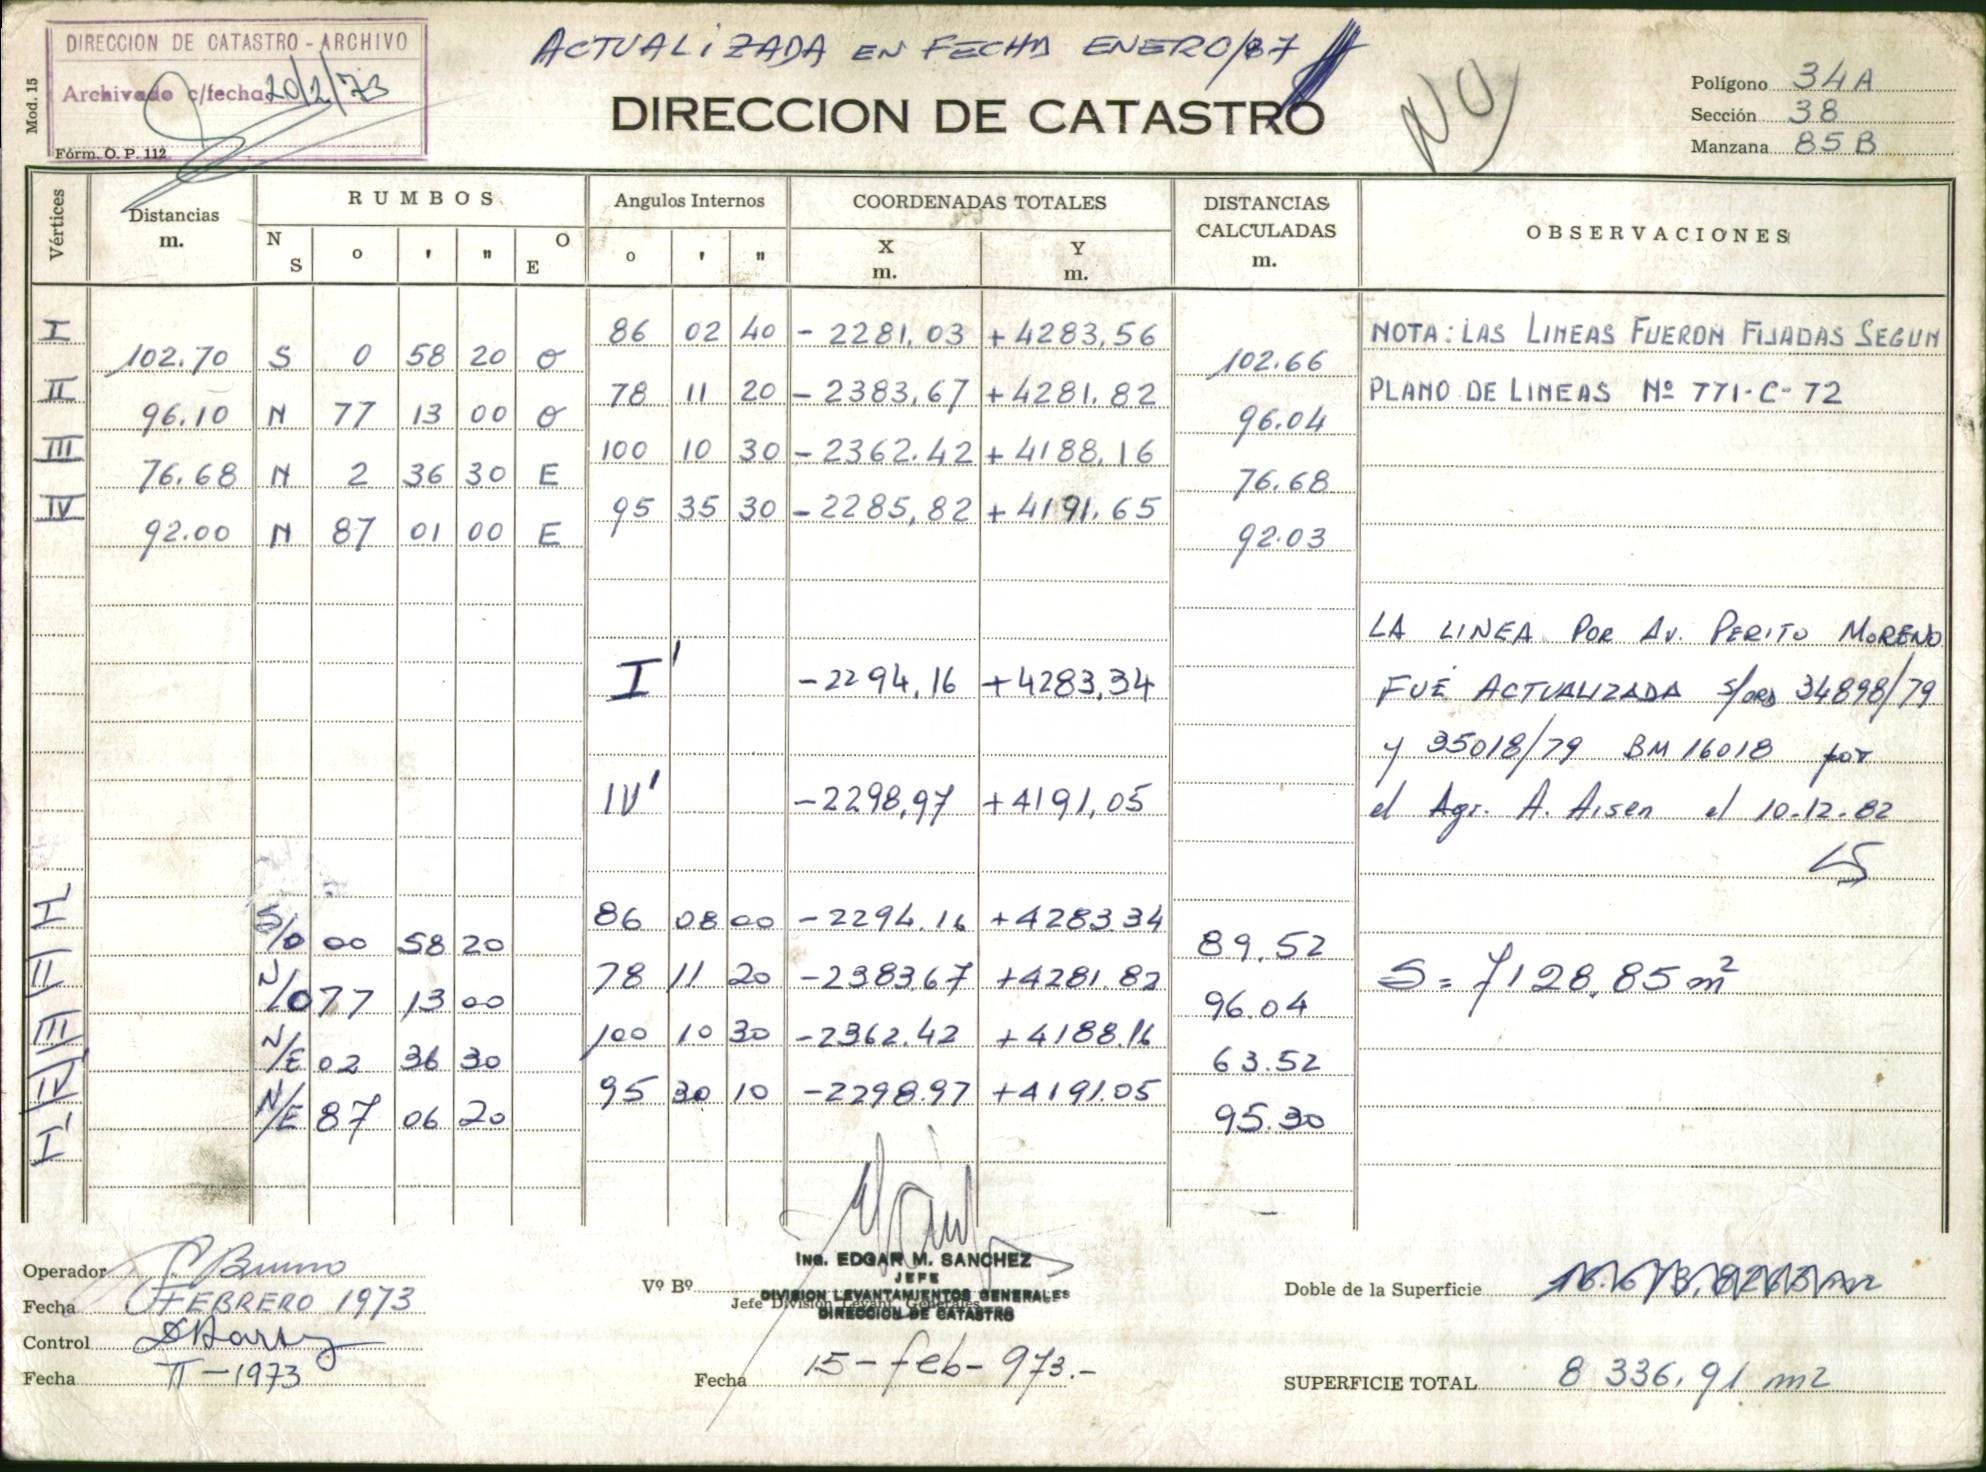 ACTUALIZADA EN FECHA ENERO/87
DIRECCION DE CATASTRO - ARCHIVO
Archivado c/fecha 20/2/73
Mod. 15
Fórm. O. P. 112
DIRECCION DE CATASTRO
NO
Polígono 34A
Sección 38
Manzana 85B
Vértices
Distancias m.
RUMBOS
N S o ' " O E
Angulos Internos
o ' "
COORDENADAS TOTALES
X m. Y m.
DISTANCIAS CALCULADAS m.
OBSERVACIONES
I 86 02 40 -2281,03 +4283,56
102.70 S 0 58 20 O 102.66
II 78 11 20 -2383,67 +4281,82
96.10 N 77 13 00 O 96.04
III 100 10 30 -2362.42 +4188,16
76.68 N 2 36 30 E 76.68
IV 95 35 30 -2285,82 +4191.65
92.00 N 87 01 00 E 92.03
NOTA: LAS LINEAS FUERON FIJADAS SEGUN
PLANO DE LINEAS Nº 771-C-72
I' -2294,16 +4283,34
IV' -2298,97 +4191,05
LA LINEA POR AV. PERITO MORENO
FUÉ ACTUALIZADA S/ORD 34898/79
y 35018/79 BM 16018 por
el Agr. A. Aisen el 10-12-82
I' 86 08 00 -2294.16 +4283.34
S/O 00 58 20 89.52
II 78 11 20 -2383.67 +4281.82
N/O 77 13 00 96.04
III 100 10 30 -2362.42 +4188.16
N/E 02 36 30 63.52
IV' 95 30 10 -2298.97 +4191.05
N/E 87 06 20 95.30
I'
S = 7128,85 m²
Operador Bruno
Fecha FEBRERO 1973
Control
Fecha II-1973
Vº Bº
Ing. EDGAR M. SANCHEZ
JEFE
DIVISION LEVANTAMIENTOS GENERALES
Jefe División Levant. Generales
DIRECCION DE CATASTRO
Fecha 15-feb-973.-
Doble de la Superficie
SUPERFICIE TOTAL 8 336,91 m2